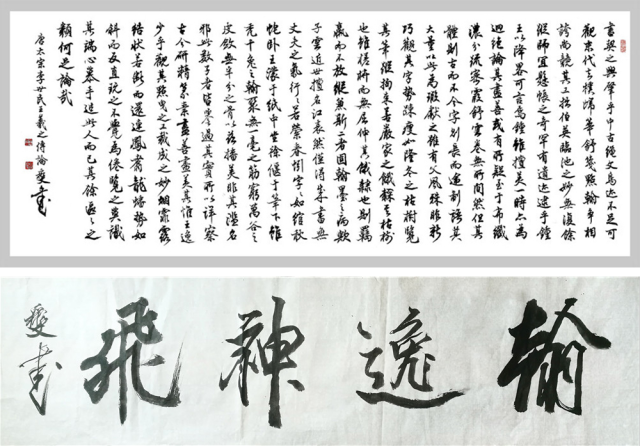 書契之興肇乎中古繩文鳥跡不足可
觀末代去樸歸華舒箋點翰爭相
誇尚競其工拙伯英臨池之妙無復餘
蹤師宜懸帳之奇罕有遺跡逮乎鍾
王以降略可言焉鍾雖擅美一時亦為
迥絕論其盡善或有所疑至於布纖
濃分疏密霞舒雲卷無所間然但其
體則古而不今字則長而逾制語其
大量以此為瑕獻之雖有父風殊非新
巧觀其字勢疎瘦如隆冬之枯樹覽
其筆蹤拘束若嚴家之餓隸其枯樹
也雖槎枿而無屈伸其餓隸也則羈
羸而不放縱兼斯二者固翰墨之病歟
子雲近世擅名江表然僅得成書無
丈夫之氣行行若縈春蚓字字如綰秋
蛇臥王濛於紙中坐徐偃於筆下雖
禿千兔之翰聚無一毫之筋窮萬谷之
皮斂無半分之骨以茲播美非其濫名
邪此數子者皆譽過其實所以詳察
古今研精篆素盡善盡美其惟王逸
少乎觀其點曳之工裁成之妙煙霏露
結狀若斷而還連鳳翥龍蟠勢如
斜而反直玩之不覺為倦覽之莫識
其端心慕手追此人而已其餘區區之
類何足論哉
唐太宗李世民王羲之傳論 雙書
翰逸神飛
雙書